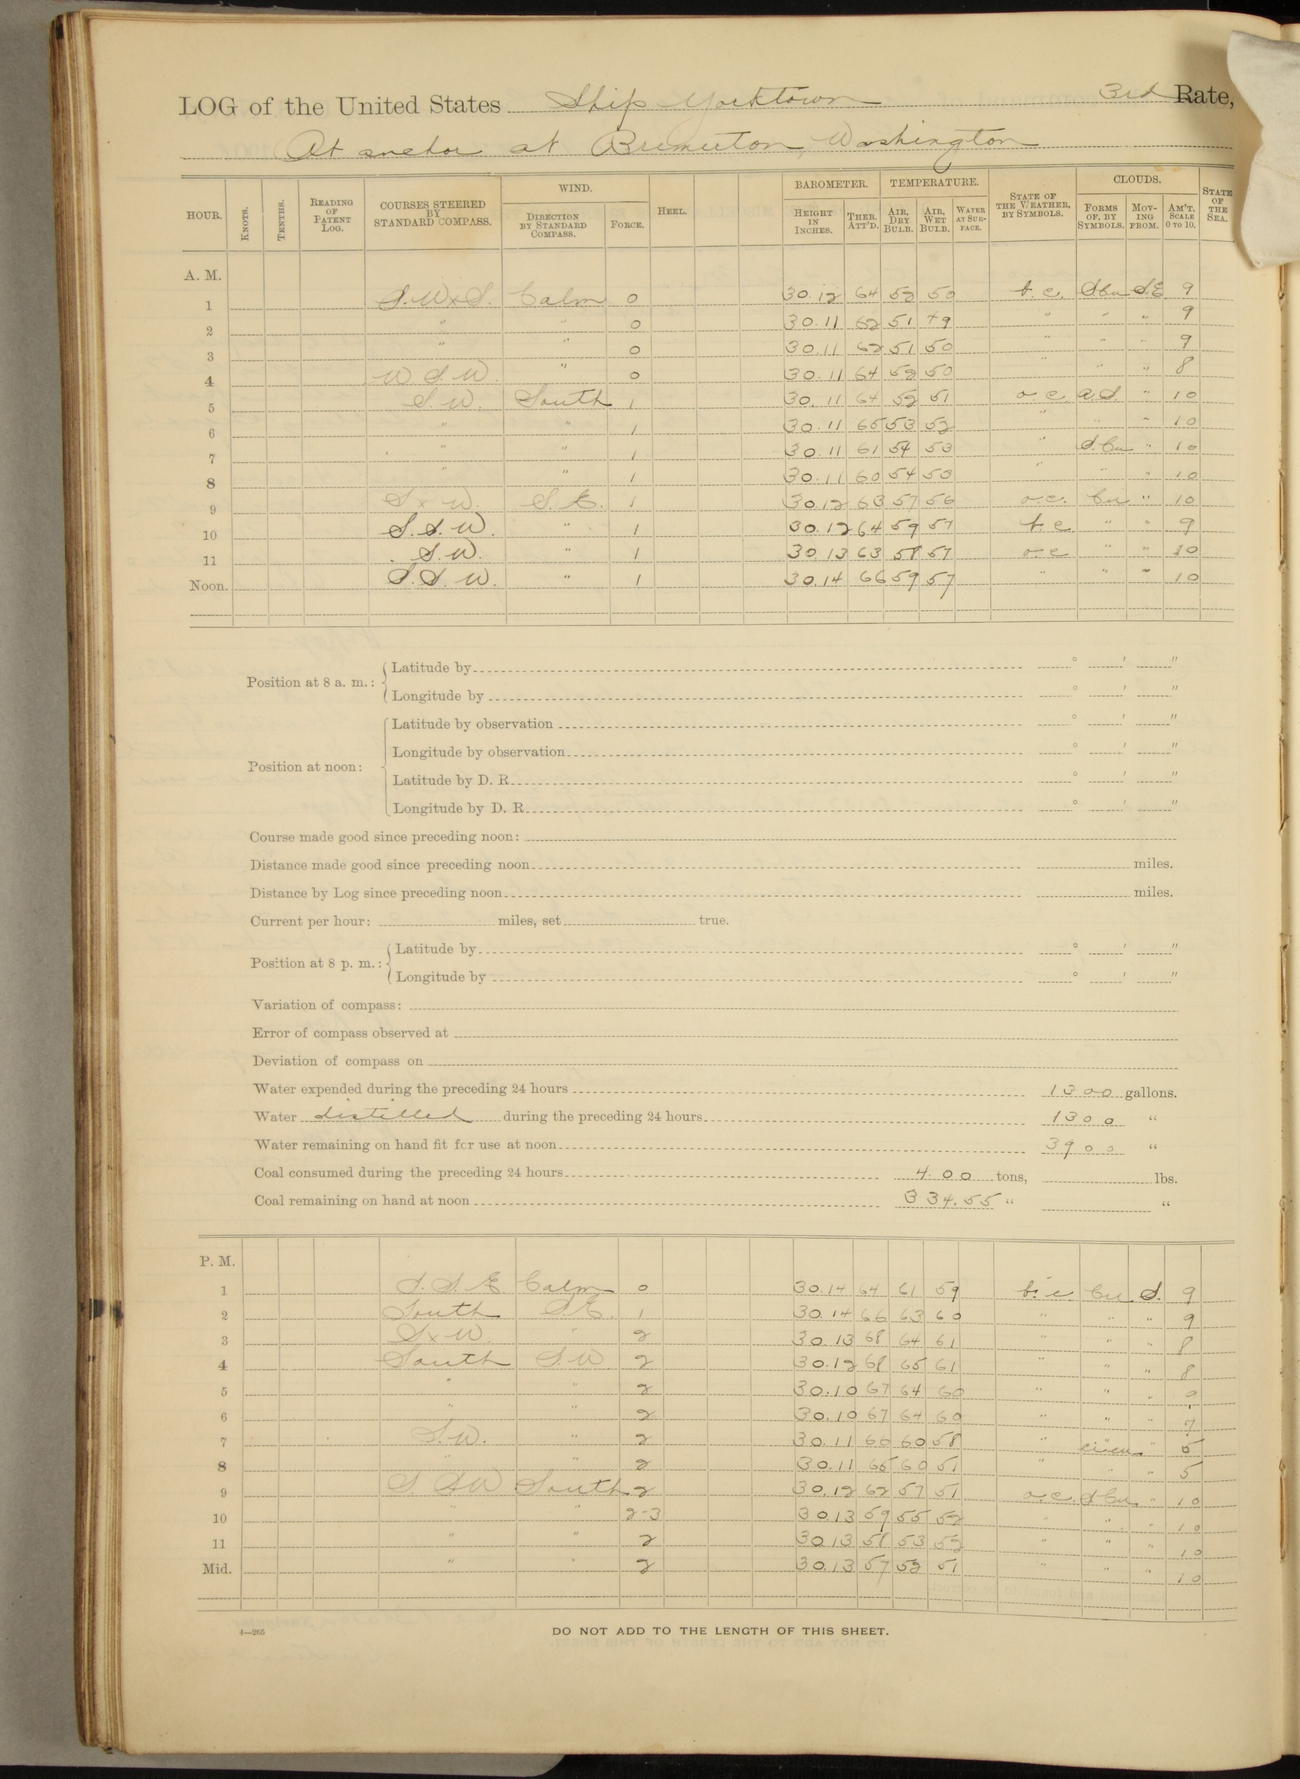 LOG of the United States Ship Yorktown 3rd Rate,
At anchor at Bremerton, Washington
HOUR. KNOTS. TENTHS. READING OF PATENT LOG. COURSES STEERED BY STANDARD COMPASS. WIND. DIRECTION BY STANDARD COMPASS. FORCE. HEEL. BAROMETER. HEIGHT IN INCHES. THER. ATT'D. TEMPERATURE. AIR, DRY BULB. AIR, WET BULB. WATER AT SURFACE. STATE OF THE WEATHER, BY SYMBOLS. CLOUDS. FORMS OF, BY SYMBOLS. MOVING FROM. AM'T. SCALE 0 TO 10. STATE OF THE SEA.
A. M.
1 S.WxS. Calm 0 30.12 64 52 50 b.c. S.Cu S.E 9
2 " " 0 30.11 62 51 49 " " " 9
3 " " 0 30.11 62 51 50 " " " 9
4 W.S.W. " 0 30.11 64 52 50 " " " 8
5 S.W. South 1 30.11 64 52 51 o.c. a.S. " 10
6 " " 1 30.11 65 53 52 " " " 10
7 " " 1 30.11 61 54 53 " S.Cu " 10
8 " " 1 30.11 60 54 53 " " " 10
9 SxW. S.E. 1 30.12 63 57 56 o.c. Cu " 10
10 S.S.W. " 1 30.12 64 59 57 b.c. " " 9
11 S.W. " 1 30.13 63 58 57 o.c " " 10
Noon. S.S.W. " 1 30.14 66 59 57 " " " 10
Position at 8 a. m.: Latitude by ° ' "
Longitude by ° ' "
Position at noon: Latitude by observation ° ' "
Longitude by observation ° ' "
Latitude by D. R. ° ' "
Longitude by D. R. ° ' "
Course made good since preceding noon:
Distance made good since preceding noon miles.
Distance by Log since preceding noon miles.
Current per hour: miles, set true.
Position at 8 p. m.: Latitude by ° ' "
Longitude by ° ' "
Variation of compass:
Error of compass observed at
Deviation of compass on
Water expended during the preceding 24 hours 1300 gallons.
Water distilled during the preceding 24 hours 1300 "
Water remaining on hand fit for use at noon 3900 "
Coal consumed during the preceding 24 hours 4.00 tons, lbs.
Coal remaining on hand at noon 334.55 " "
P. M.
1 S.S.E. Calm 0 30.14 64 61 59 b.c. Cu S. 9
2 South S.E. 1 30.14 66 63 60 " " " 9
3 SxW. " 2 30.13 68 64 61 " " " 8
4 South S.W 2 30.12 68 65 61 " " " 8
5 " " 2 30.10 67 64 60 " " "
6 " " 2 30.10 67 64 60 " " " 7
7 S.W. " 2 30.11 66 60 58 " " 5
8 " " 2 30.11 65 60 51 " " " 5
9 S.SW South 2 30.12 62 57 51 o.c. S.Cu. " 10
10 " " 2-3 30.13 59 55 52 " " " 10
11 " " 2 30.13 58 53 52 " " " 10
Mid. " " 2 30.13 57 52 51 " " " 10
4—265
DO NOT ADD TO THE LENGTH OF THIS SHEET.